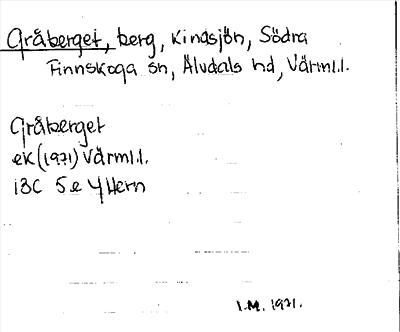 Gråberget, berg, Kindsjön, Södra
Finnskoga sn, Älvdals hd, Värml.l.
Gråberget
ek (1971) Värml.l.
13C 5e Y Hern
I.M. 1971.